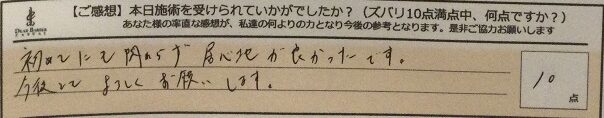 【ご感想】本日施術を受けられていかがでしたか？（ズバリ10点満点中、何点ですか？）
あなた様の率直な感想が、私達の何よりの力となり今後の参考となります。是非ご協力お願いします
初めてにも関わらず居心地が良かったです。
今後ともよろしくお願いします。
10
点